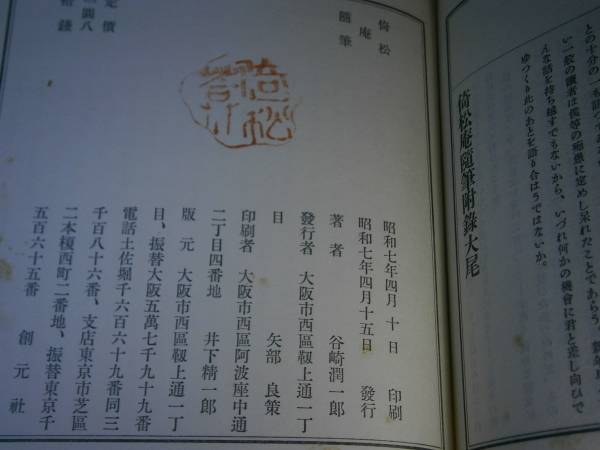 との十分の一も
い一般の讀者は僕等の痴愚に定めし呆れたことであらう。
んな話を持ち越すでもないから、いづれ何かの機會に君と差し向ひで
ゆつくり此のあとを語り合はうではないか。
倚松庵隨筆附錄大尾
昭和七年四月十日 印刷
昭和七年四月十五日 發行
著者 谷崎潤一郎
發行者 大阪市西區靱上通一丁
目 矢部良策
印刷者 大阪市西區阿波座中通
二丁目四番地 井下精一郎
版元 大阪市西區靱上通一丁
目、振替大阪五萬七千九十九番
電話土佐堀千六百六十九番同三
千百八十六番、支店東京市芝區
二本榎西町二番地、振替東京千
五百六十五番 創元社
倚松庵隨筆
定價
圓八
拾錢